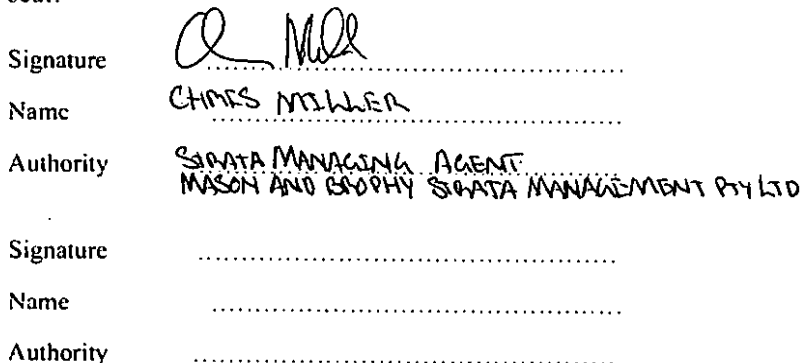 seal.
Signature
Name CHRIS MILLER
Authority STRATA MANAGING AGENT
MASON AND BROPHY STRATA MANAGEMENT PTY LTD
Signature
Name
Authority